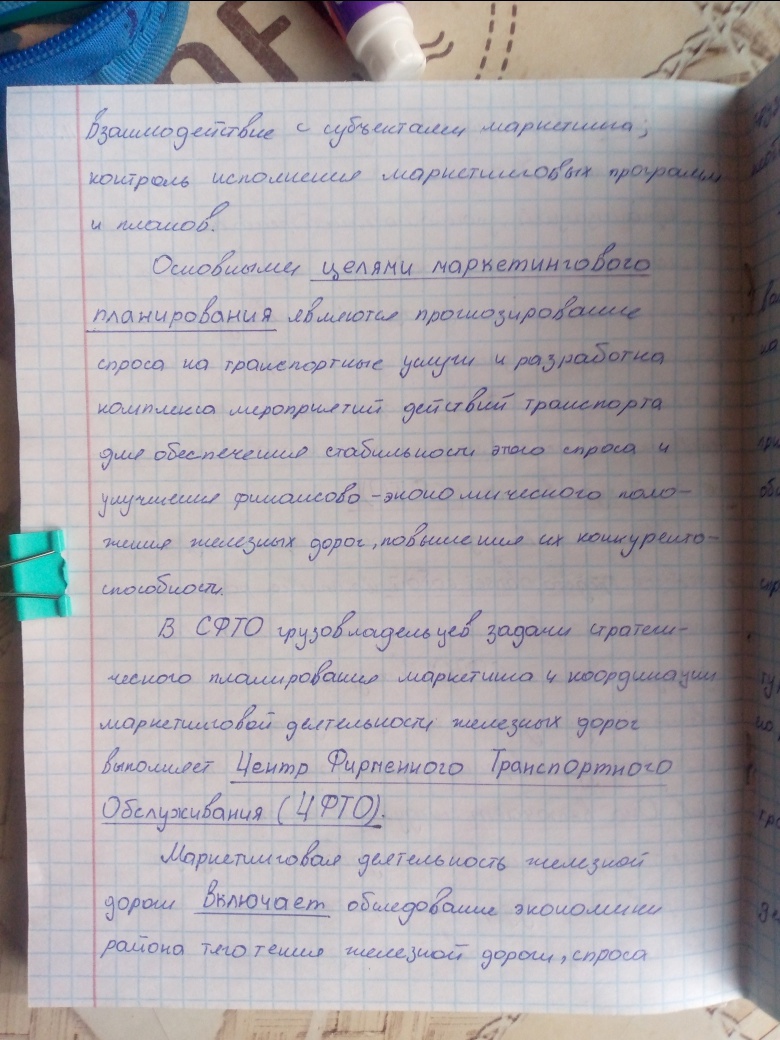 взаимодействие с субъектами маркетинга;
контроль исполнения маркетинговых программ
и планов.
Основными целями маркетингового
планирования являются прогнозирование
спроса на транспортные услуги и разработка
комплекса мероприятий действий транспорта
для обеспечения стабильности этого спроса и
улучшения финансово-экономического поло-
жения железных дорог, повышения их конкуренто-
способности.
В СФТО грузовладельцев задачи стратеги-
ческого планирования маркетинга и координации
маркетинговой деятельности железных дорог
выполняет Центр Фирменного Транспортного
Обслуживания (ЦФТО).
Маркетинговая деятельность железной
дороги включает обследование экономики
района тяготения железной дороги, спроса